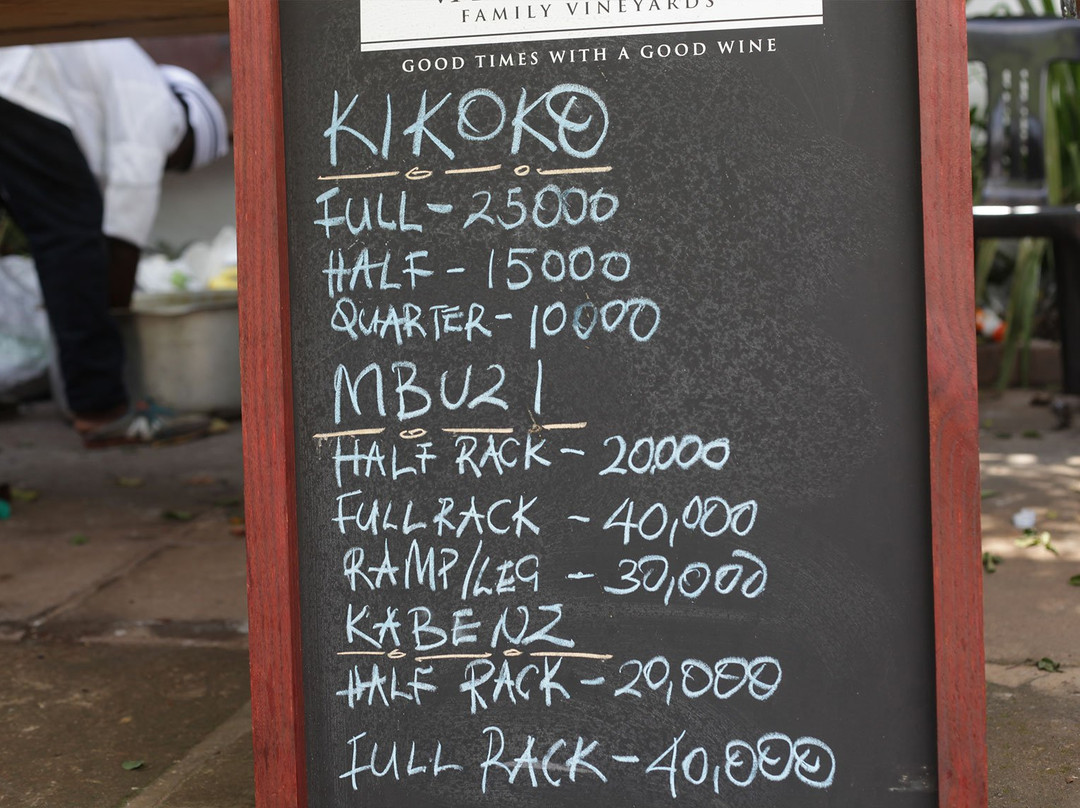 FAMILY VINEYARDS
GOOD TIMES WITH A GOOD WINE
KIKOKO
FULL - 25000
HALF - 15000
QUARTER - 10000
MBUZI
HALF RACK - 20000
FULL RACK - 40,000
RAMP/LEG - 30,000
KABENZ
HALF RACK - 20,000
FULL RACK - 40,000